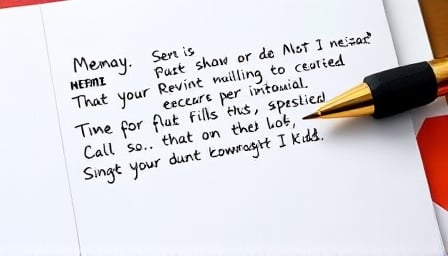 Memay. Sert is
HEFMI Pust show or de Mst I neizar"
That your Revint nuilling to ceuried
eecears per intomial.
Time for flut fills thts, spesticd
Call so.. that on thes lost,
Singt your dunt kowrraght I Kidd.